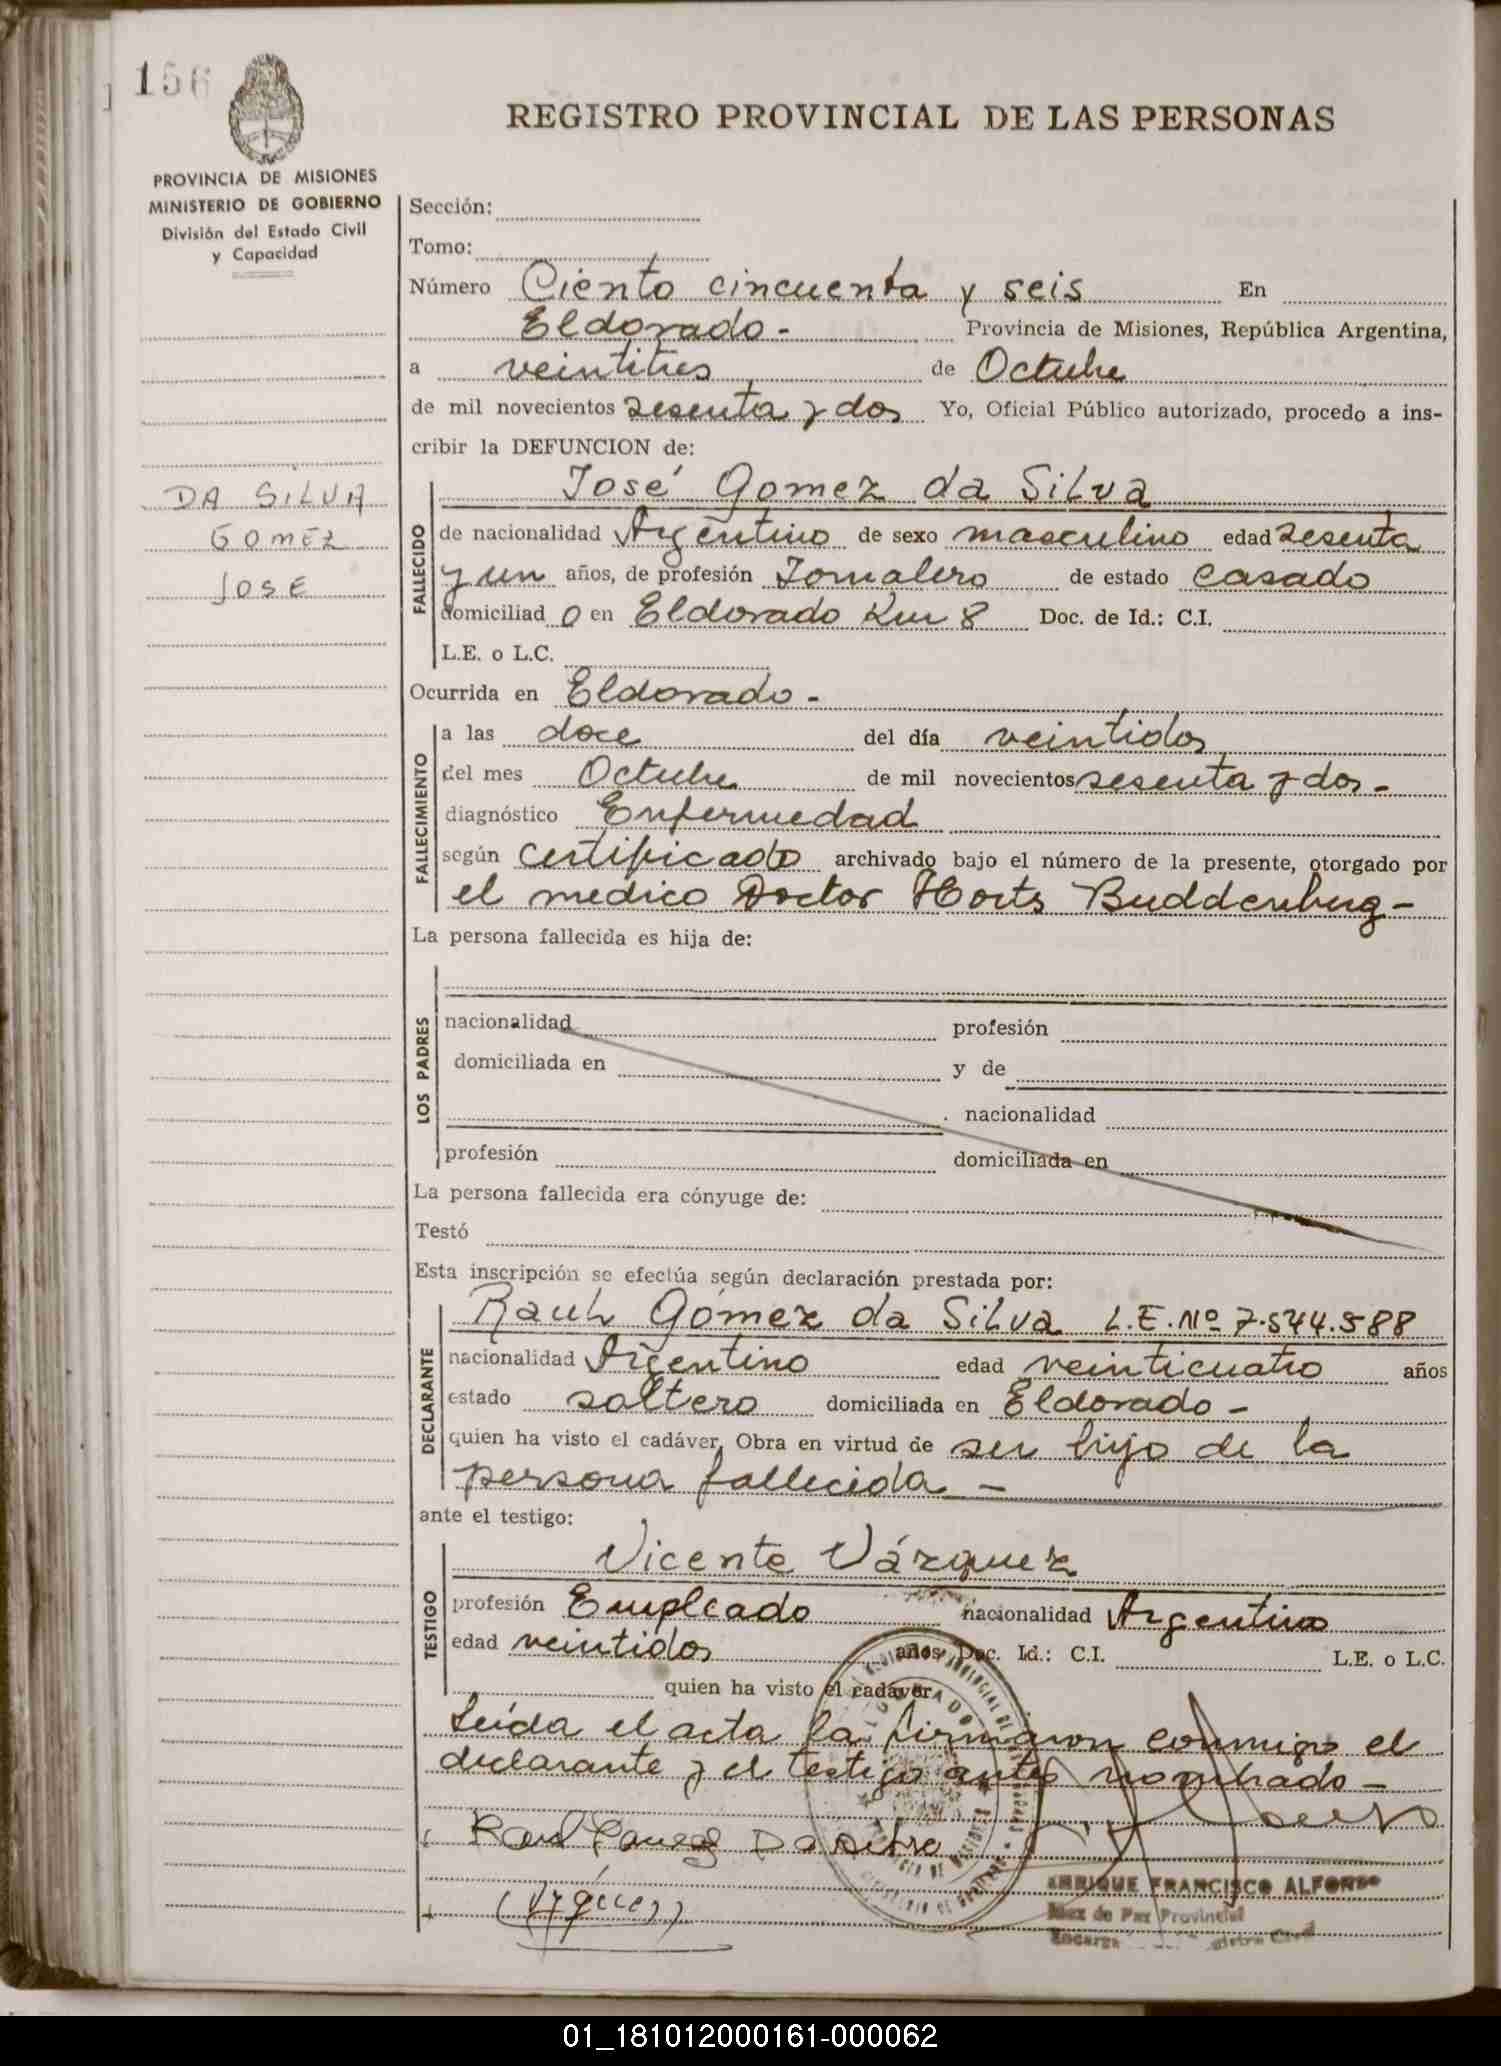 156
REGISTRO PROVINCIAL DE LAS PERSONAS
PROVINCIA DE MISIONES
MINISTERIO DE GOBIERNO
División del Estado Civil
y Capacidad
DA SILVA
GOMEZ
JOSE
Sección:
Tomo:
Número Ciento cincuenta y seis En
Eldorado - Provincia de Misiones, República Argentina,
a veintitres de Octubre
de mil novecientos sesenta y dos Yo, Oficial Público autorizado, procedo a ins-
cribir la DEFUNCION de:
FALLECIDO
José Gomez da Silva
de nacionalidad Argentino de sexo masculino edad sesenta
y un años, de profesión Jornalero de estado casado
domiciliad o en Eldorado Km 8 Doc. de Id.: C.I.
L.E. o L.C.
Ocurrida en Eldorado -
FALLECIMIENTO
a las doce del día veintidos
del mes Octubre de mil novecientos sesenta y dos -
diagnóstico Enfermedad
según certificado archivado bajo el número de la presente, otorgado por
el medico Doctor Horts Buddenberg -
La persona fallecida es hija de:
LOS PADRES
nacionalidad profesión
domiciliada en y de
nacionalidad
profesión domiciliada en
La persona fallecida era cónyuge de:
Testó
Esta inscripción se efectúa según declaración prestada por:
DECLARANTE
Raul Gómez da Silva L.E. Nº 7.544.588
nacionalidad Argentino edad veinticuatro años
estado soltero domiciliada en Eldorado -
quien ha visto el cadáver. Obra en virtud de ser hijo de la
persona fallecida -
ante el testigo:
TESTIGO
Vicente Vázquez
profesión Empleado nacionalidad Argentino
edad veintidos años Doc. Id.: C.I. L.E. o L.C.
quien ha visto el cadáver
Leída el acta la firmaron conmigo el
declarante y el testigo antes nombrado -
Raul Gomez Da Silva
ENRIQUE FRANCISCO ALFONSO
Juez de Paz Provincial
01_181012000161-000062